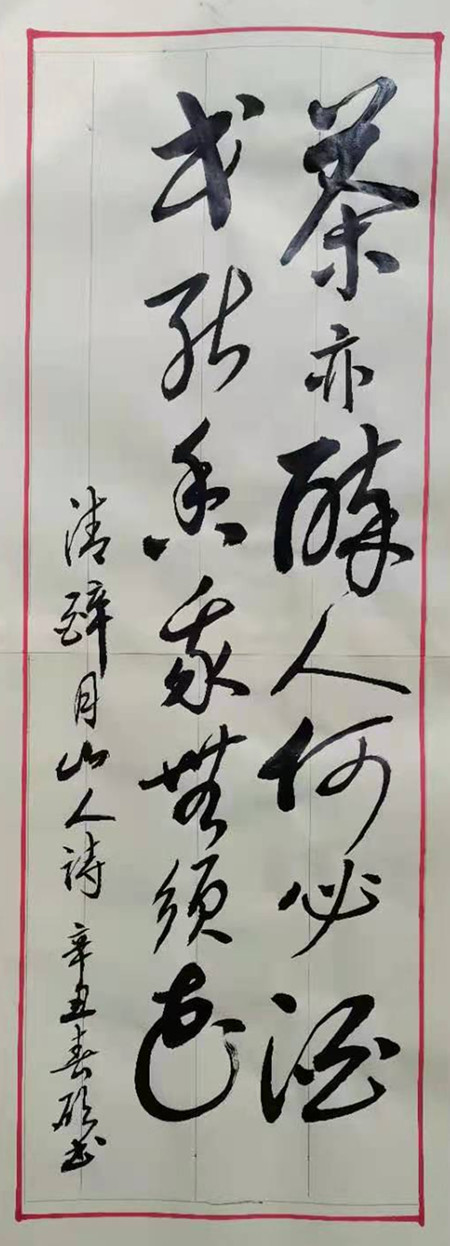 茶亦醉人何必酒
书能香我無須花
清醉月山人詩 辛丑春书